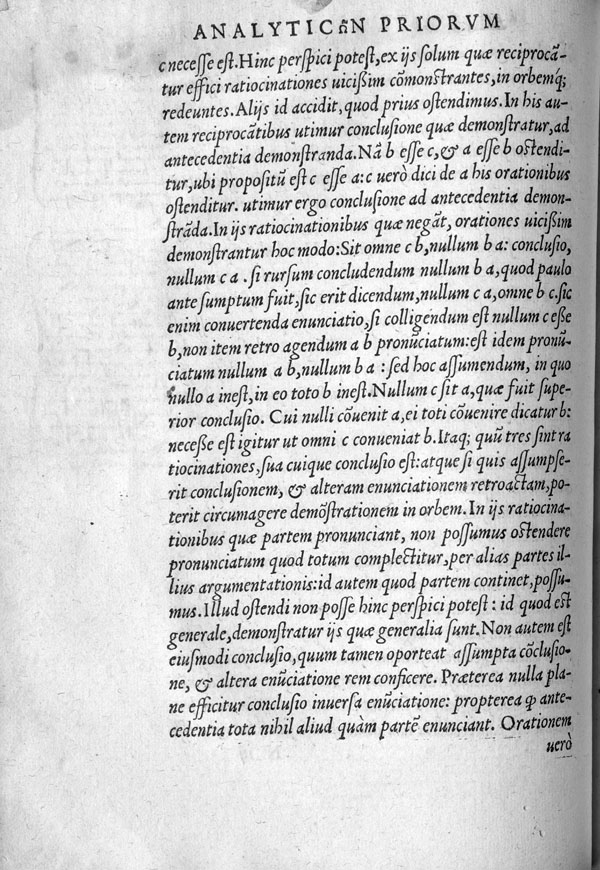 ANALYTICῶN PRIORVM
c necesse est. Hinc perspici potest, ex ijs solum quæ reciprocã-
tur effici ratiocinationes uicißim cõmonstrantes, in orbemq́;
redeuntes. Alijs id accidit, quod prius ostendimus. In his au-
tem reciprocãtibus utimur conclusione quæ demonstratur, ad
antecedentia demonstranda. Nã b esse c, & a esse b ostendi-
tur, ubi propositũ est c esse a: c uerò dici de a his orationibus
ostenditur. utimur ergo conclusione ad antecedentia demon-
strãda. In ijs ratiocinationibus quæ negãt, orationes uicißim
demonstrantur hoc modo: Sit omne c b, nullum b a: conclusio,
nullum c a. si rursum concludendum nullum b a, quod paulo
ante sumptum fuit, sic erit dicendum, nullum c a, omne b c. sic
enim conuertenda enunciatio, si colligendum est nullum c eße
b, non item retro agendum a b pronũciatum: est idem pronũ-
ciatum nullum a b, nullum b a: sed hoc assumendum, in quo
nullo a inest, in eo toto b inest. Nullum c sit a, quæ fuit supe-
rior conclusio. Cui nulli cõuenit a, ei toti cõuenire dicatur b:
neceße est igitur ut omni c conueniat b. Itaq; quũ tres sint ra
tiocinationes, sua cuique conclusio est: atque si quis assumpse-
rit conclusionem, & alteram enunciationem retroactam, po-
terit circumagere demõstrationem in orbem. In ijs ratiocina-
tionibus quæ partem pronunciant, non possumus ostendere
pronunciatum quod totum complectitur, per alias partes il-
lius argumentationis: id autem quod partem continet, possu-
mus. Illud ostendi non posse hinc perspici potest: id quod est
generale, demonstratur ijs quæ generalia sunt. Non autem est
eiusmodi conclusio, quum tamen oporteat assumpta cõclusio-
ne, & altera enũciatione rem conficere. Præterea nulla pla-
ne efficitur conclusio inuersa enũciatione: propterea ꝙ ante-
cedentia tota nihil aliud quàm partẽ enunciant. Orationem
uerò